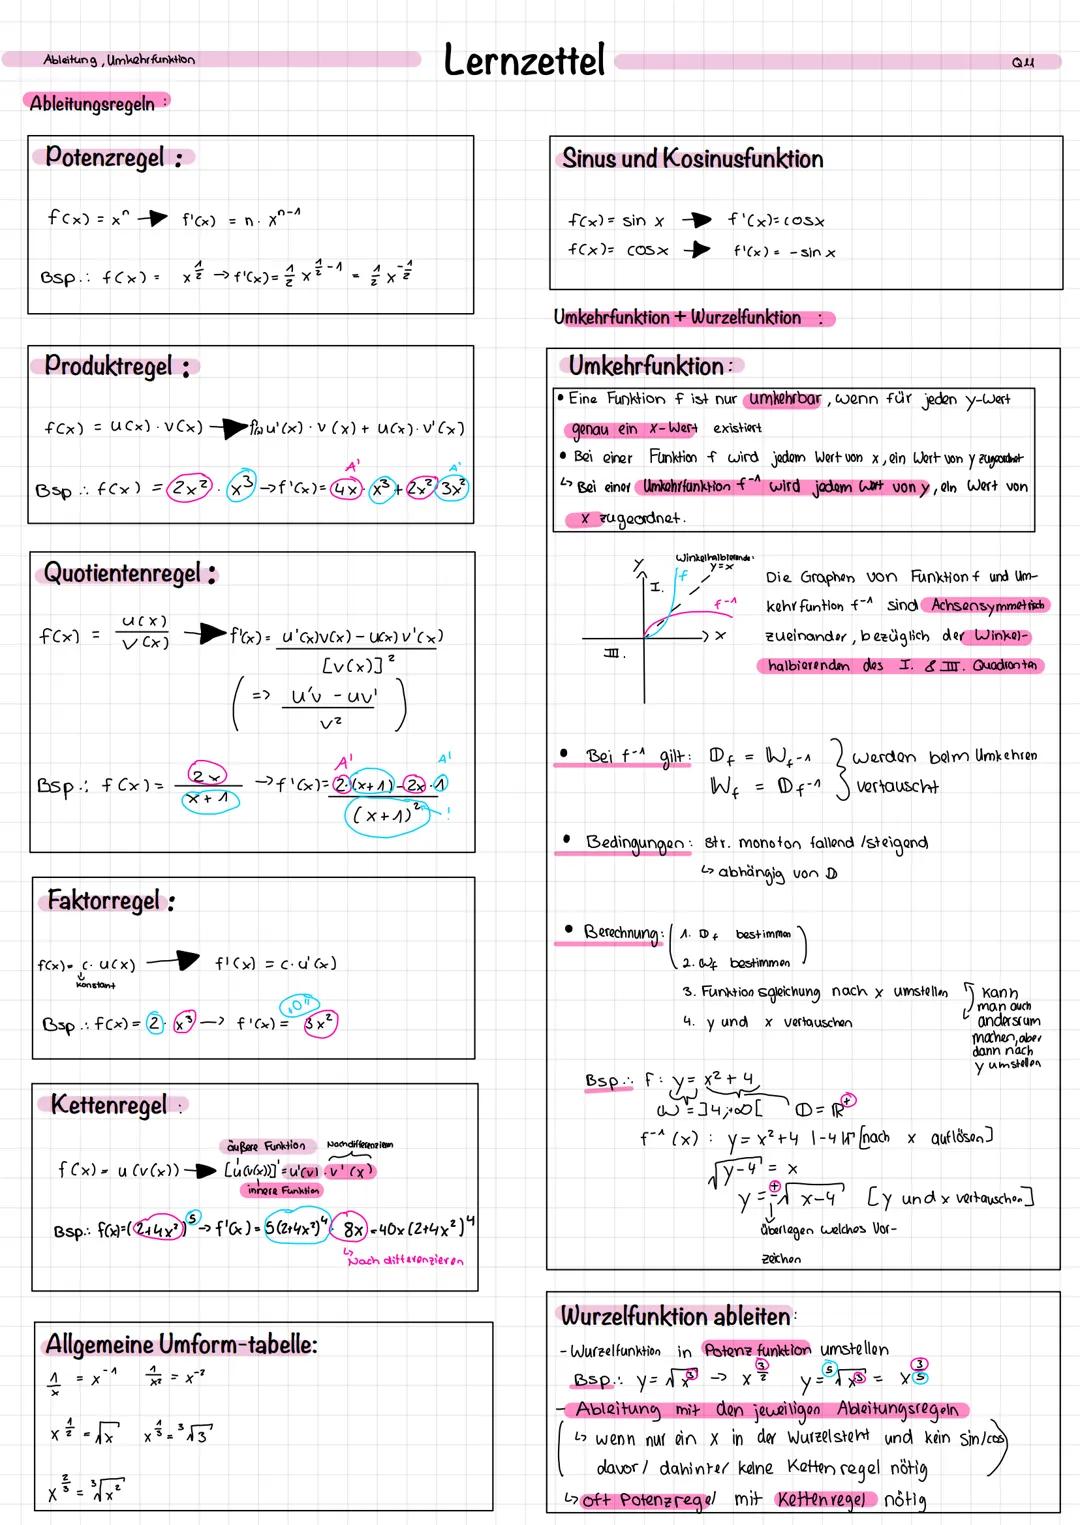 Ableitung, Umkehrfunktion
Lernzettel
Q11
Ableitungsregeln :
Potenzregel :
f(x) = xⁿ → f'(x) = n · xⁿ⁻¹
Bsp.: f(x) = x^(1/2) → f'(x) = 1/2 x^(1/2 - 1) = 1/2 x^(-1/2)
Produktregel :
f(x) = u(x) · v(x) → u'(x) · v(x) + u(x) · v'(x)
A' A'
Bsp.: f(x) = 2x² · x³ → f'(x) = 4x · x³ + 2x² 3x²
Quotientenregel :
f(x) = u(x)/v(x) → f'(x) = u'(x)v(x) − u(x)v'(x) / [v(x)]²
( => u'v − uv' / v² )
A' A'
Bsp.: f(x) = 2x / x+1 → f'(x) = 2·(x+1) − 2x · 1 / (x+1)² !
Faktorregel :
f(x) = c · u(x) → f'(x) = c · u'(x)
konstant
"0"
Bsp.: f(x) = 2 · x³ → f'(x) = 3x²
Kettenregel :
äußere Funktion Nachdifferenzieren
f(x) = u(v(x)) → [u(v(x))]' = u'(v) · v'(x)
innere Funktion
Bsp.: f(x) = (2+4x²)⁵ → f'(x) = 5(2+4x²)⁴ · 8x = 40x(2+4x²)⁴
↳ Nach differenzieren
Allgemeine Umform-tabelle:
1/x = x⁻¹ 1/x² = x⁻²
x^(1/2) = √x x^(1/3) = ³√3
x^(2/3) = ³√x²
Sinus und Kosinusfunktion
f(x) = sin x → f'(x) = cosx
f(x) = cosx → f'(x) = - sin x
Umkehrfunktion + Wurzelfunktion :
Umkehrfunktion:
• Eine Funktion f ist nur umkehrbar, wenn für jeden y-Wert
genau ein x-Wert existiert
• Bei einer Funktion f wird jedem Wert von x, ein Wert von y zugeordnet
↳ Bei einer Umkehrfunktion f⁻¹ wird jedem Wert von y, ein Wert von
x zugeordnet.
Winkelhalbierende:
y=x
y
f
I.
f⁻¹
x
III.
Die Graphen von Funktion f und Um-
kehrfuntion f⁻¹ sind Achsensymmetrisch
zueinander, bezüglich der Winkel-
halbierenden des I. & III. Quadranten
• Bei f⁻¹ gilt: 𝔻f = 𝕎f⁻¹ } werden beim Umkehren
𝕎f = 𝔻f⁻¹ } vertauscht
• Bedingungen: str. monoton fallend /steigend
↳ abhängig von 𝔻
• Berechnung: ( 1. 𝔻f bestimmen
2. 𝕎f bestimmen )
3. Funktionsgleichung nach x umstellen
4. y und x vertauschen
kann
man auch
andersrum
machen, aber
dann nach
y umstellen
Bsp.: f: y = x² + 4
𝕎 = ]4;∞[ 𝔻 = ℝ⁺
f⁻¹(x) : y = x²+4 |-4 |√ [nach x auflösen]
√y-4 = x
y = ±√x-4 [y und x vertauschen]
überlegen welches Vor-
zeichen
Wurzelfunktion ableiten:
- Wurzelfunktion in Potenzfunktion umstellen
Bsp.: y = √x³ → x^(3/2) y = ⁵√x³ = x^(3/5)
- Ableitung mit den jeweiligen Ableitungsregeln
( ↳ wenn nur ein x in der Wurzel steht und kein sin/cos
davor/ dahinter keine Kettenregel nötig )
↳ oft Potenzregel mit Kettenregel nötig